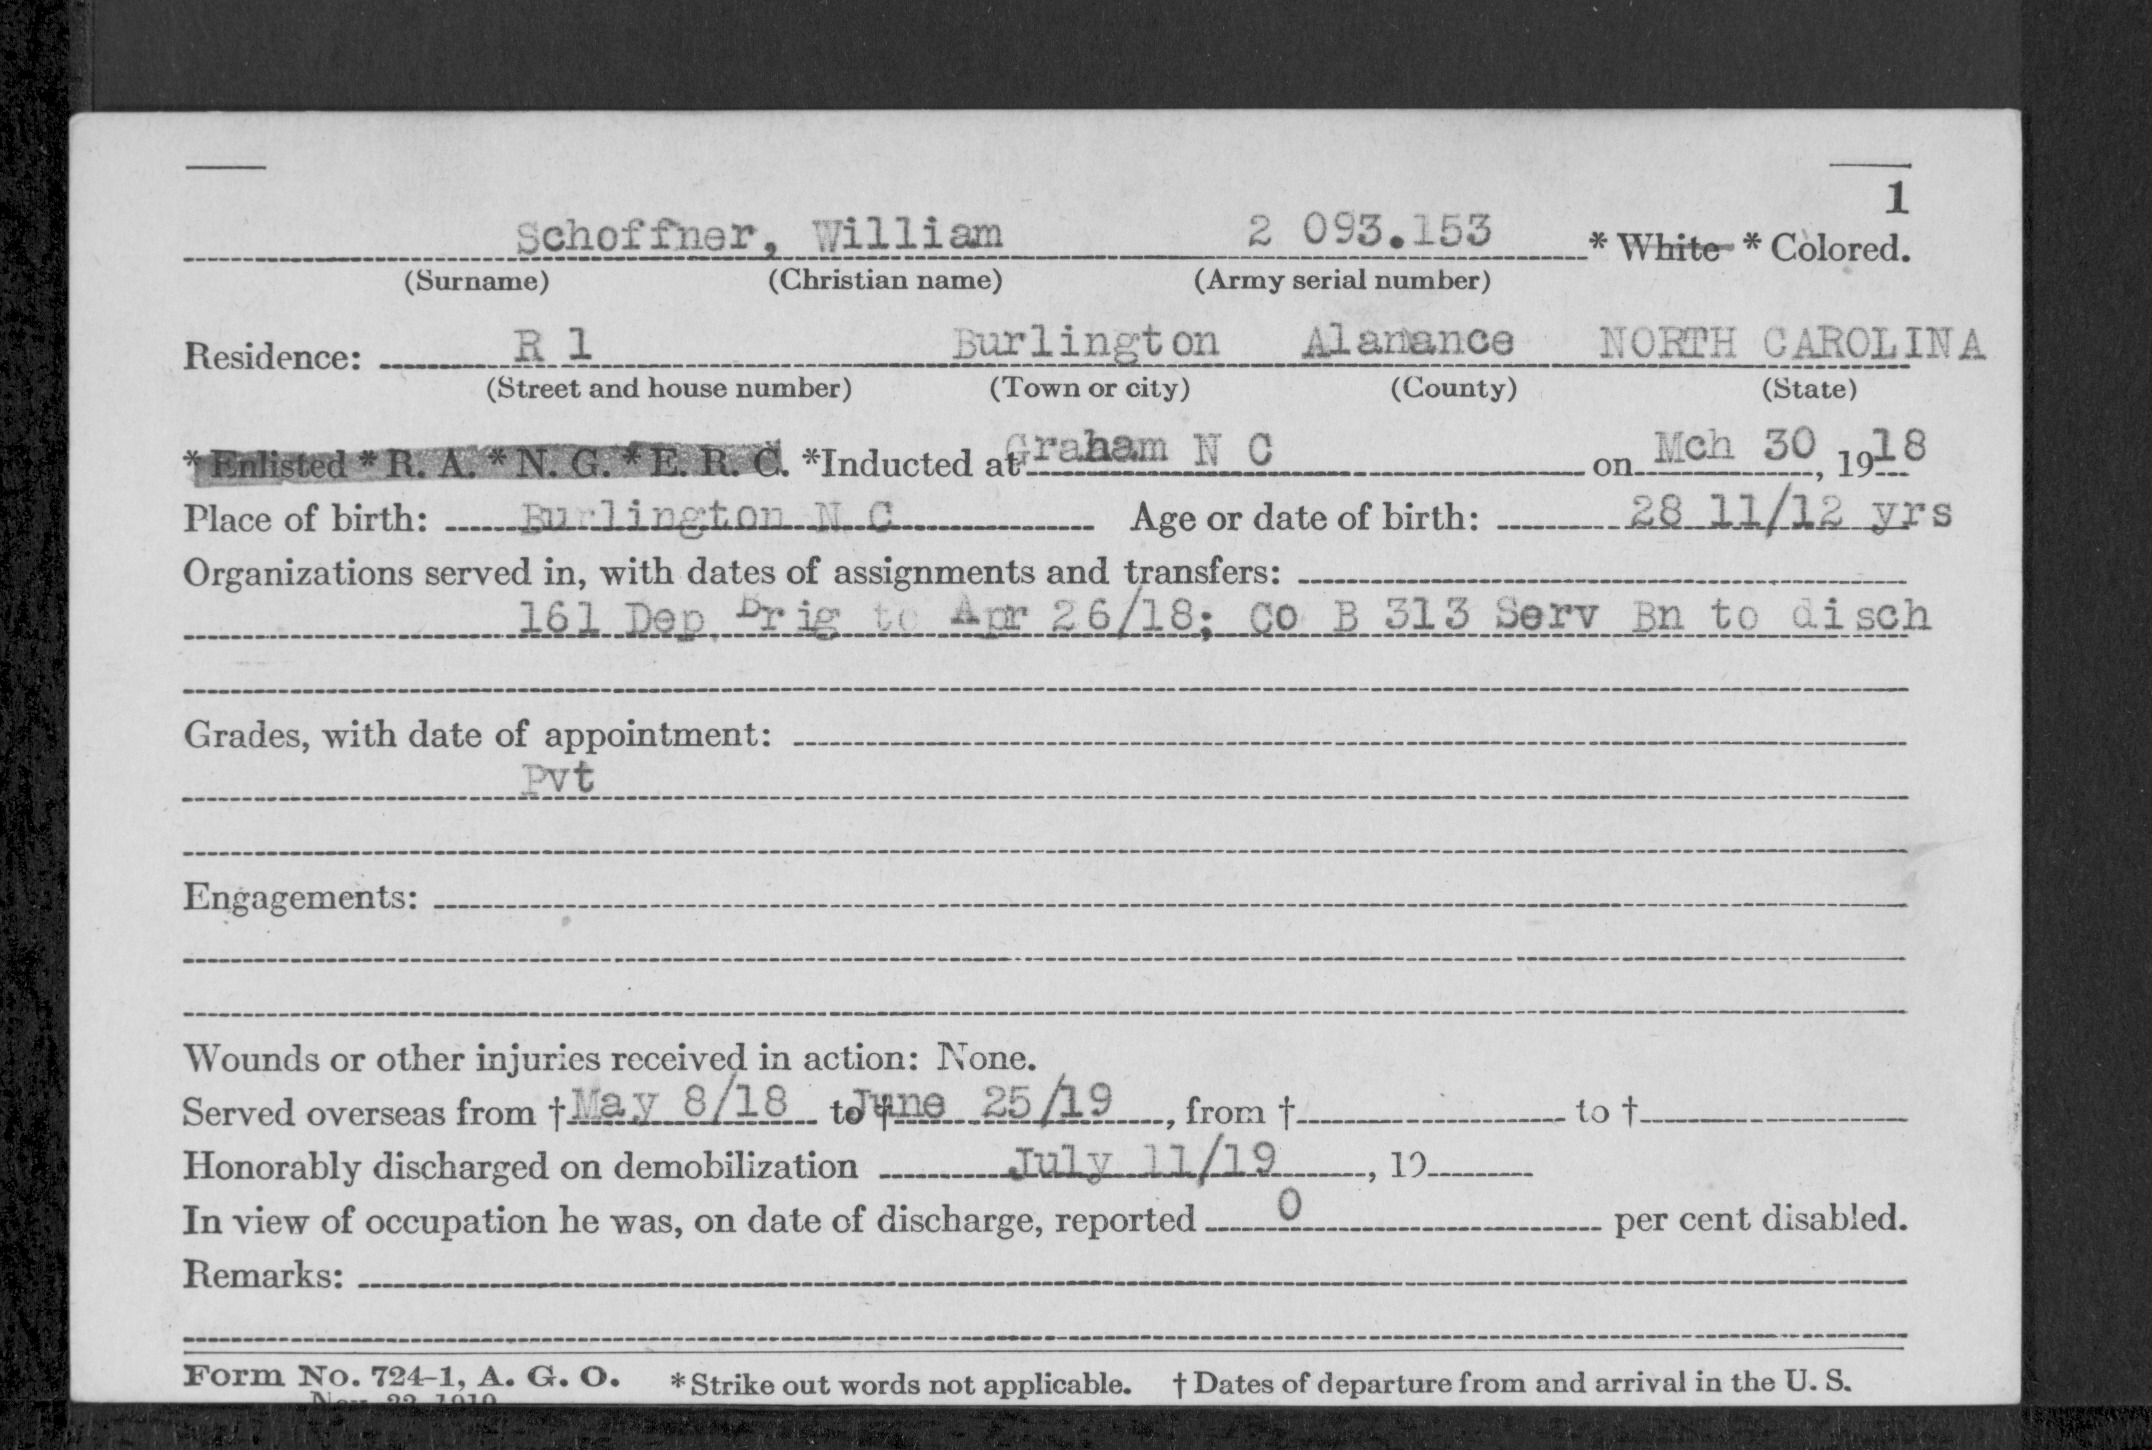 1
Schoffner, William 2 093.153 * White * Colored.
(Surname) (Christian name) (Army serial number)
Residence: R 1 Burlington Alamance NORTH CAROLINA
(Street and house number) (Town or city) (County) (State)
* Enlisted * R. A. * N. G. * E. R. C. *Inducted at Graham N C on Mch 30, 1918
Place of birth: Burlington N C Age or date of birth: 28 11/12 yrs
Organizations served in, with dates of assignments and transfers:
161 Dep Brig to Apr 26/18; Co B 313 Serv Bn to disch
Grades, with date of appointment:
Pvt
Engagements:
Wounds or other injuries received in action: None.
Served overseas from † May 8/18 to † June 25/19, from † to †
Honorably discharged on demobilization July 11/19, 19
In view of occupation he was, on date of discharge, reported 0 per cent disabled.
Remarks:
Form No. 724-1, A. G. O. * Strike out words not applicable. † Dates of departure from and arrival in the U. S.
Nov. 22, 1919